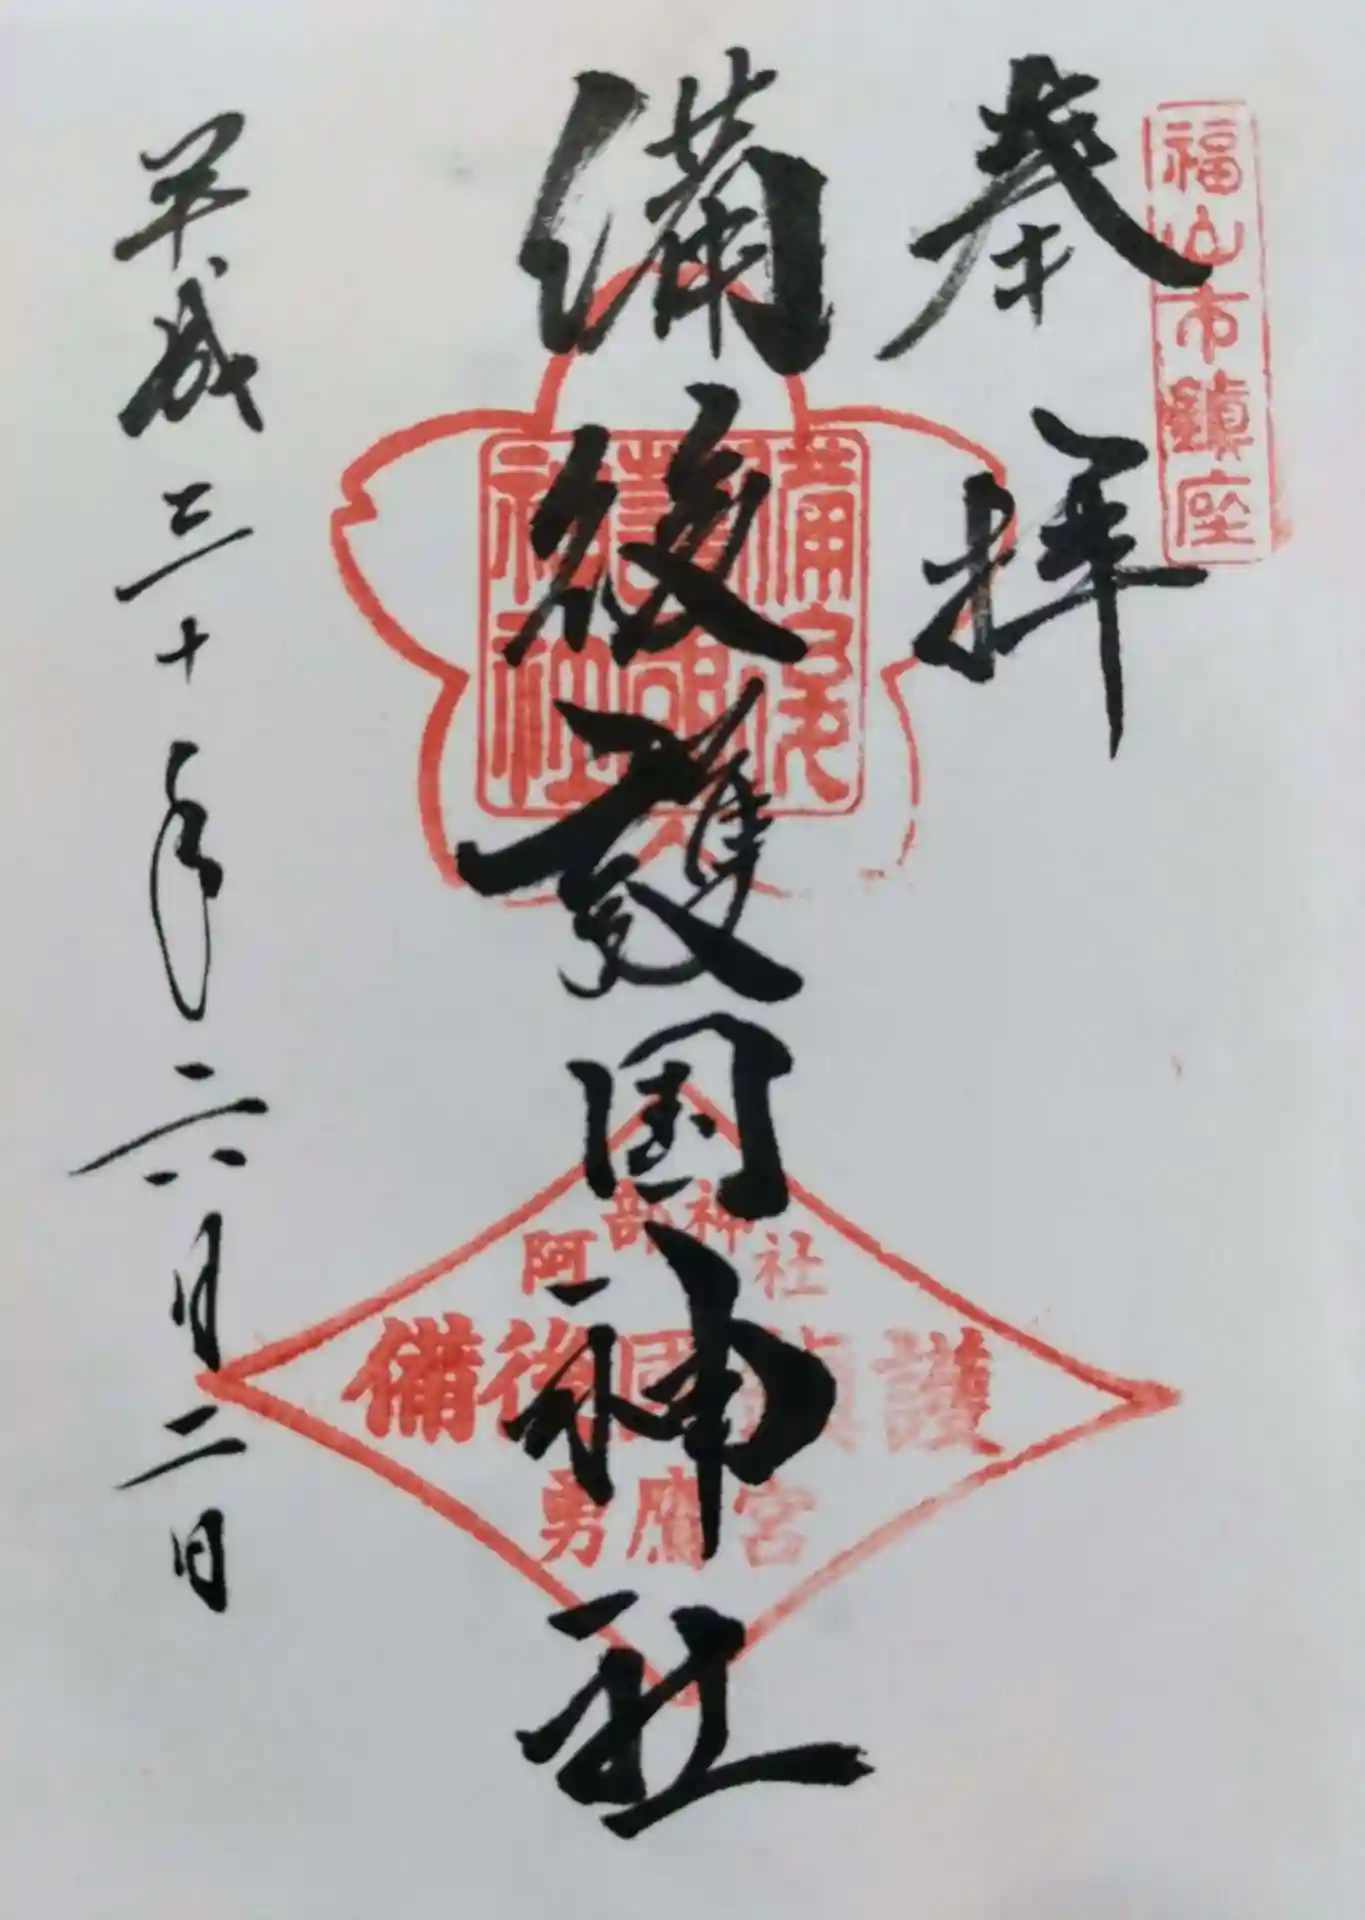 福山市鎮座
奉拝
備後護国神社
備後
護國
神社
阿部神社
備後国鎮護
勇鷹宮
平成三十年六月二日